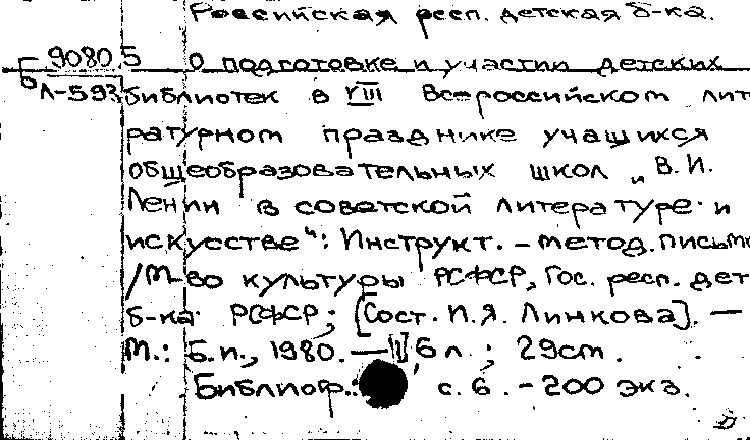 Российская респ. детская б-ка.
Б 9080.5 О подготовке и участии детских
Л-593 библиотек в VIII Всероссийском лит
ратурном празднике учащихся
общеобразовательных школ "В.И.
Ленин в советской литературе и
искусстве": Инструкт.-метод. письмо
/М-во культуры РСФСР, Гос. респ. дет
б-ка РСФСР; [Сост. И.Я. Линкова]. —
М.: Б.и., 1980. — 6 л.; 29см.
Библиогр.: с. 6. - 200 экз.